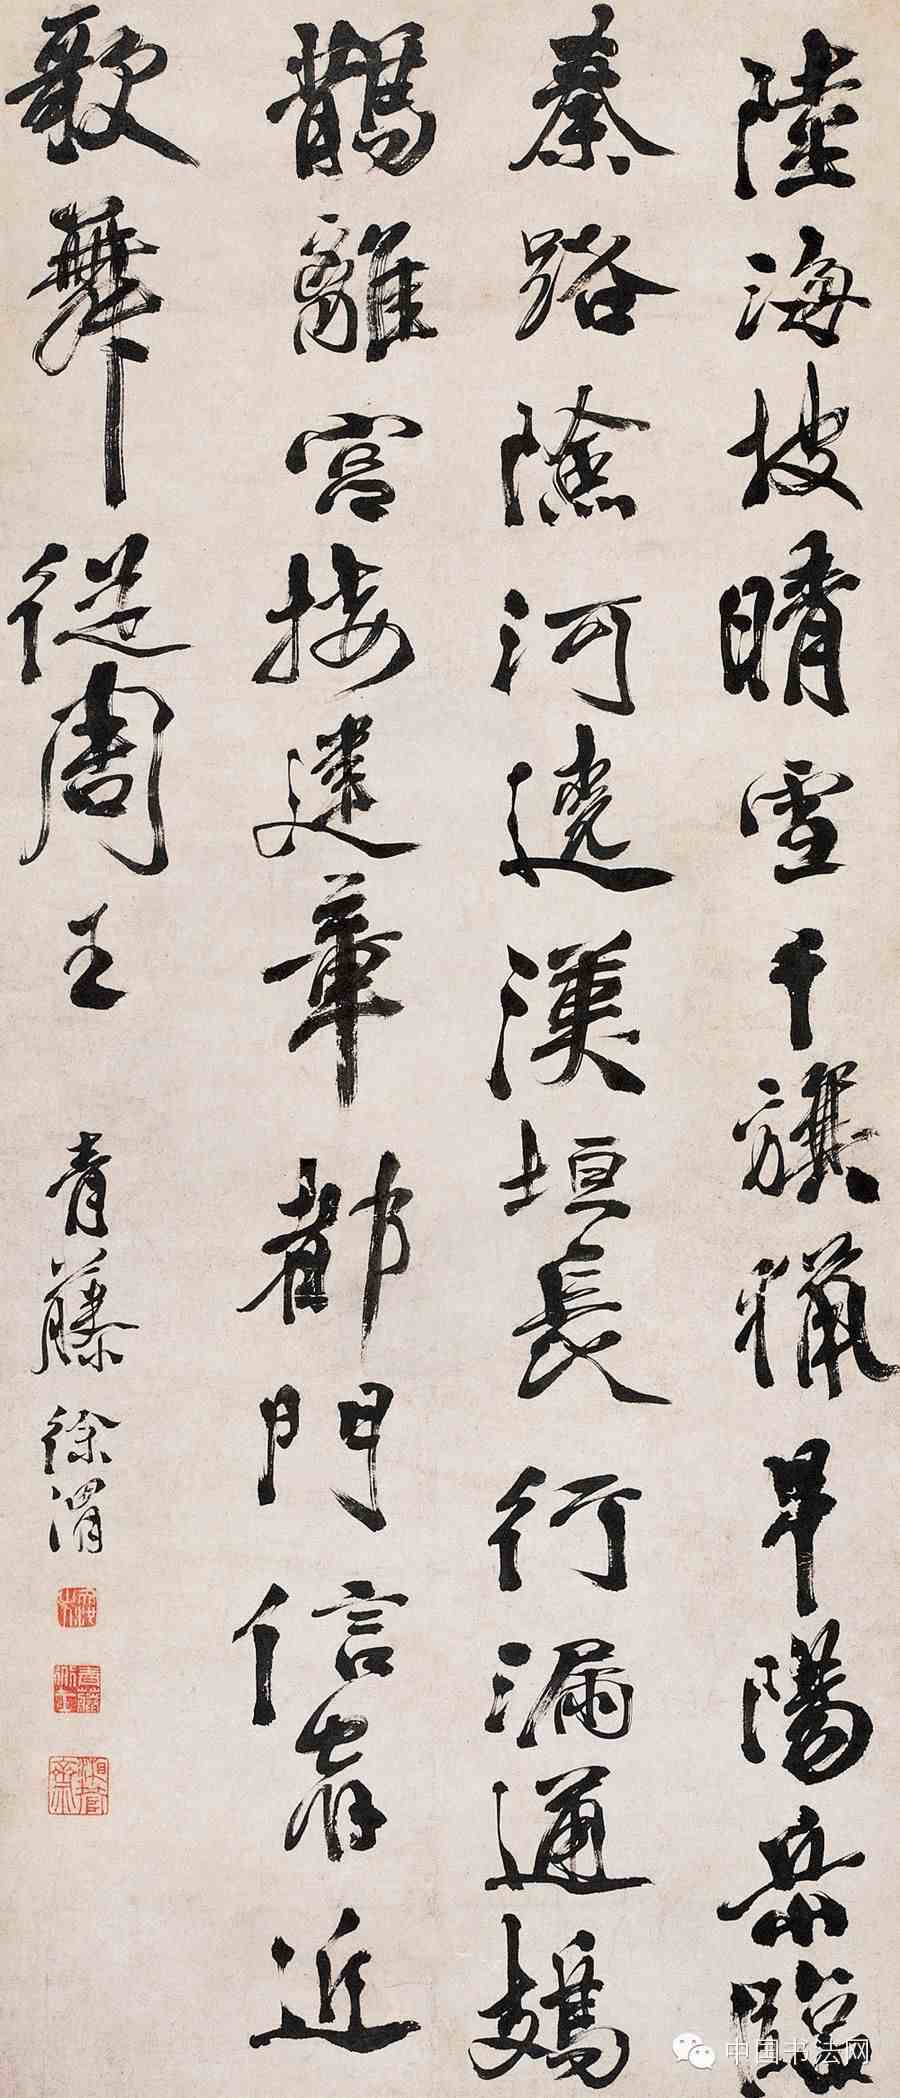 陸海披晴雪千旗獵早陽岳臨
秦路險河遶漢垣長行漏通鳷
鵲離宮接建章都門信宿近
歌舞從周王
青藤徐渭
湘管齋
中国书法网